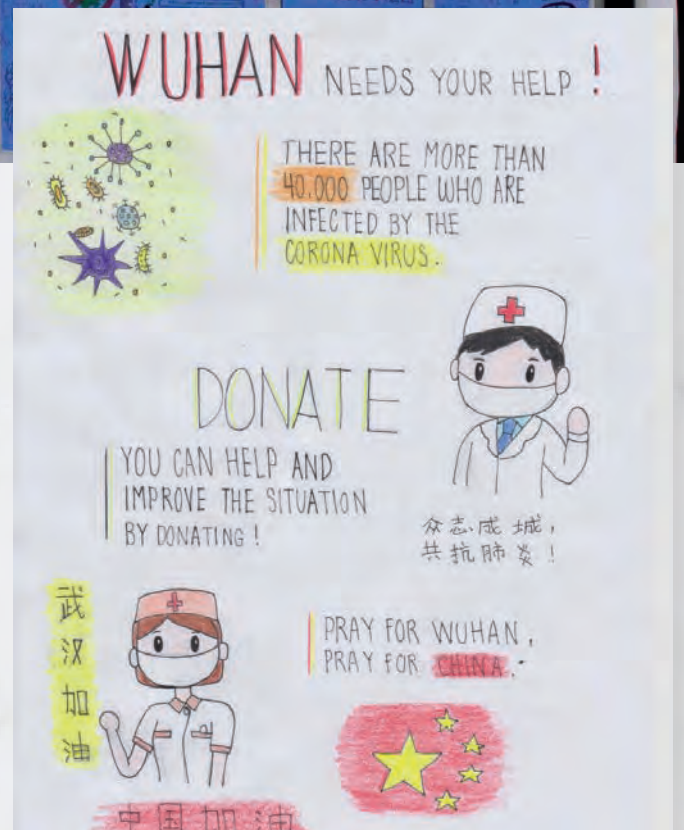 WUHAN NEEDS YOUR HELP !
THERE ARE MORE THAN
40.000 PEOPLE WHO ARE
INFECTED BY THE
CORONA VIRUS.
DONATE
YOU CAN HELP AND
IMPROVE THE SITUATION
BY DONATING !
众志成城，
共抗肺炎！
武汉加油
PRAY FOR WUHAN,
PRAY FOR CHINA.
中国加油